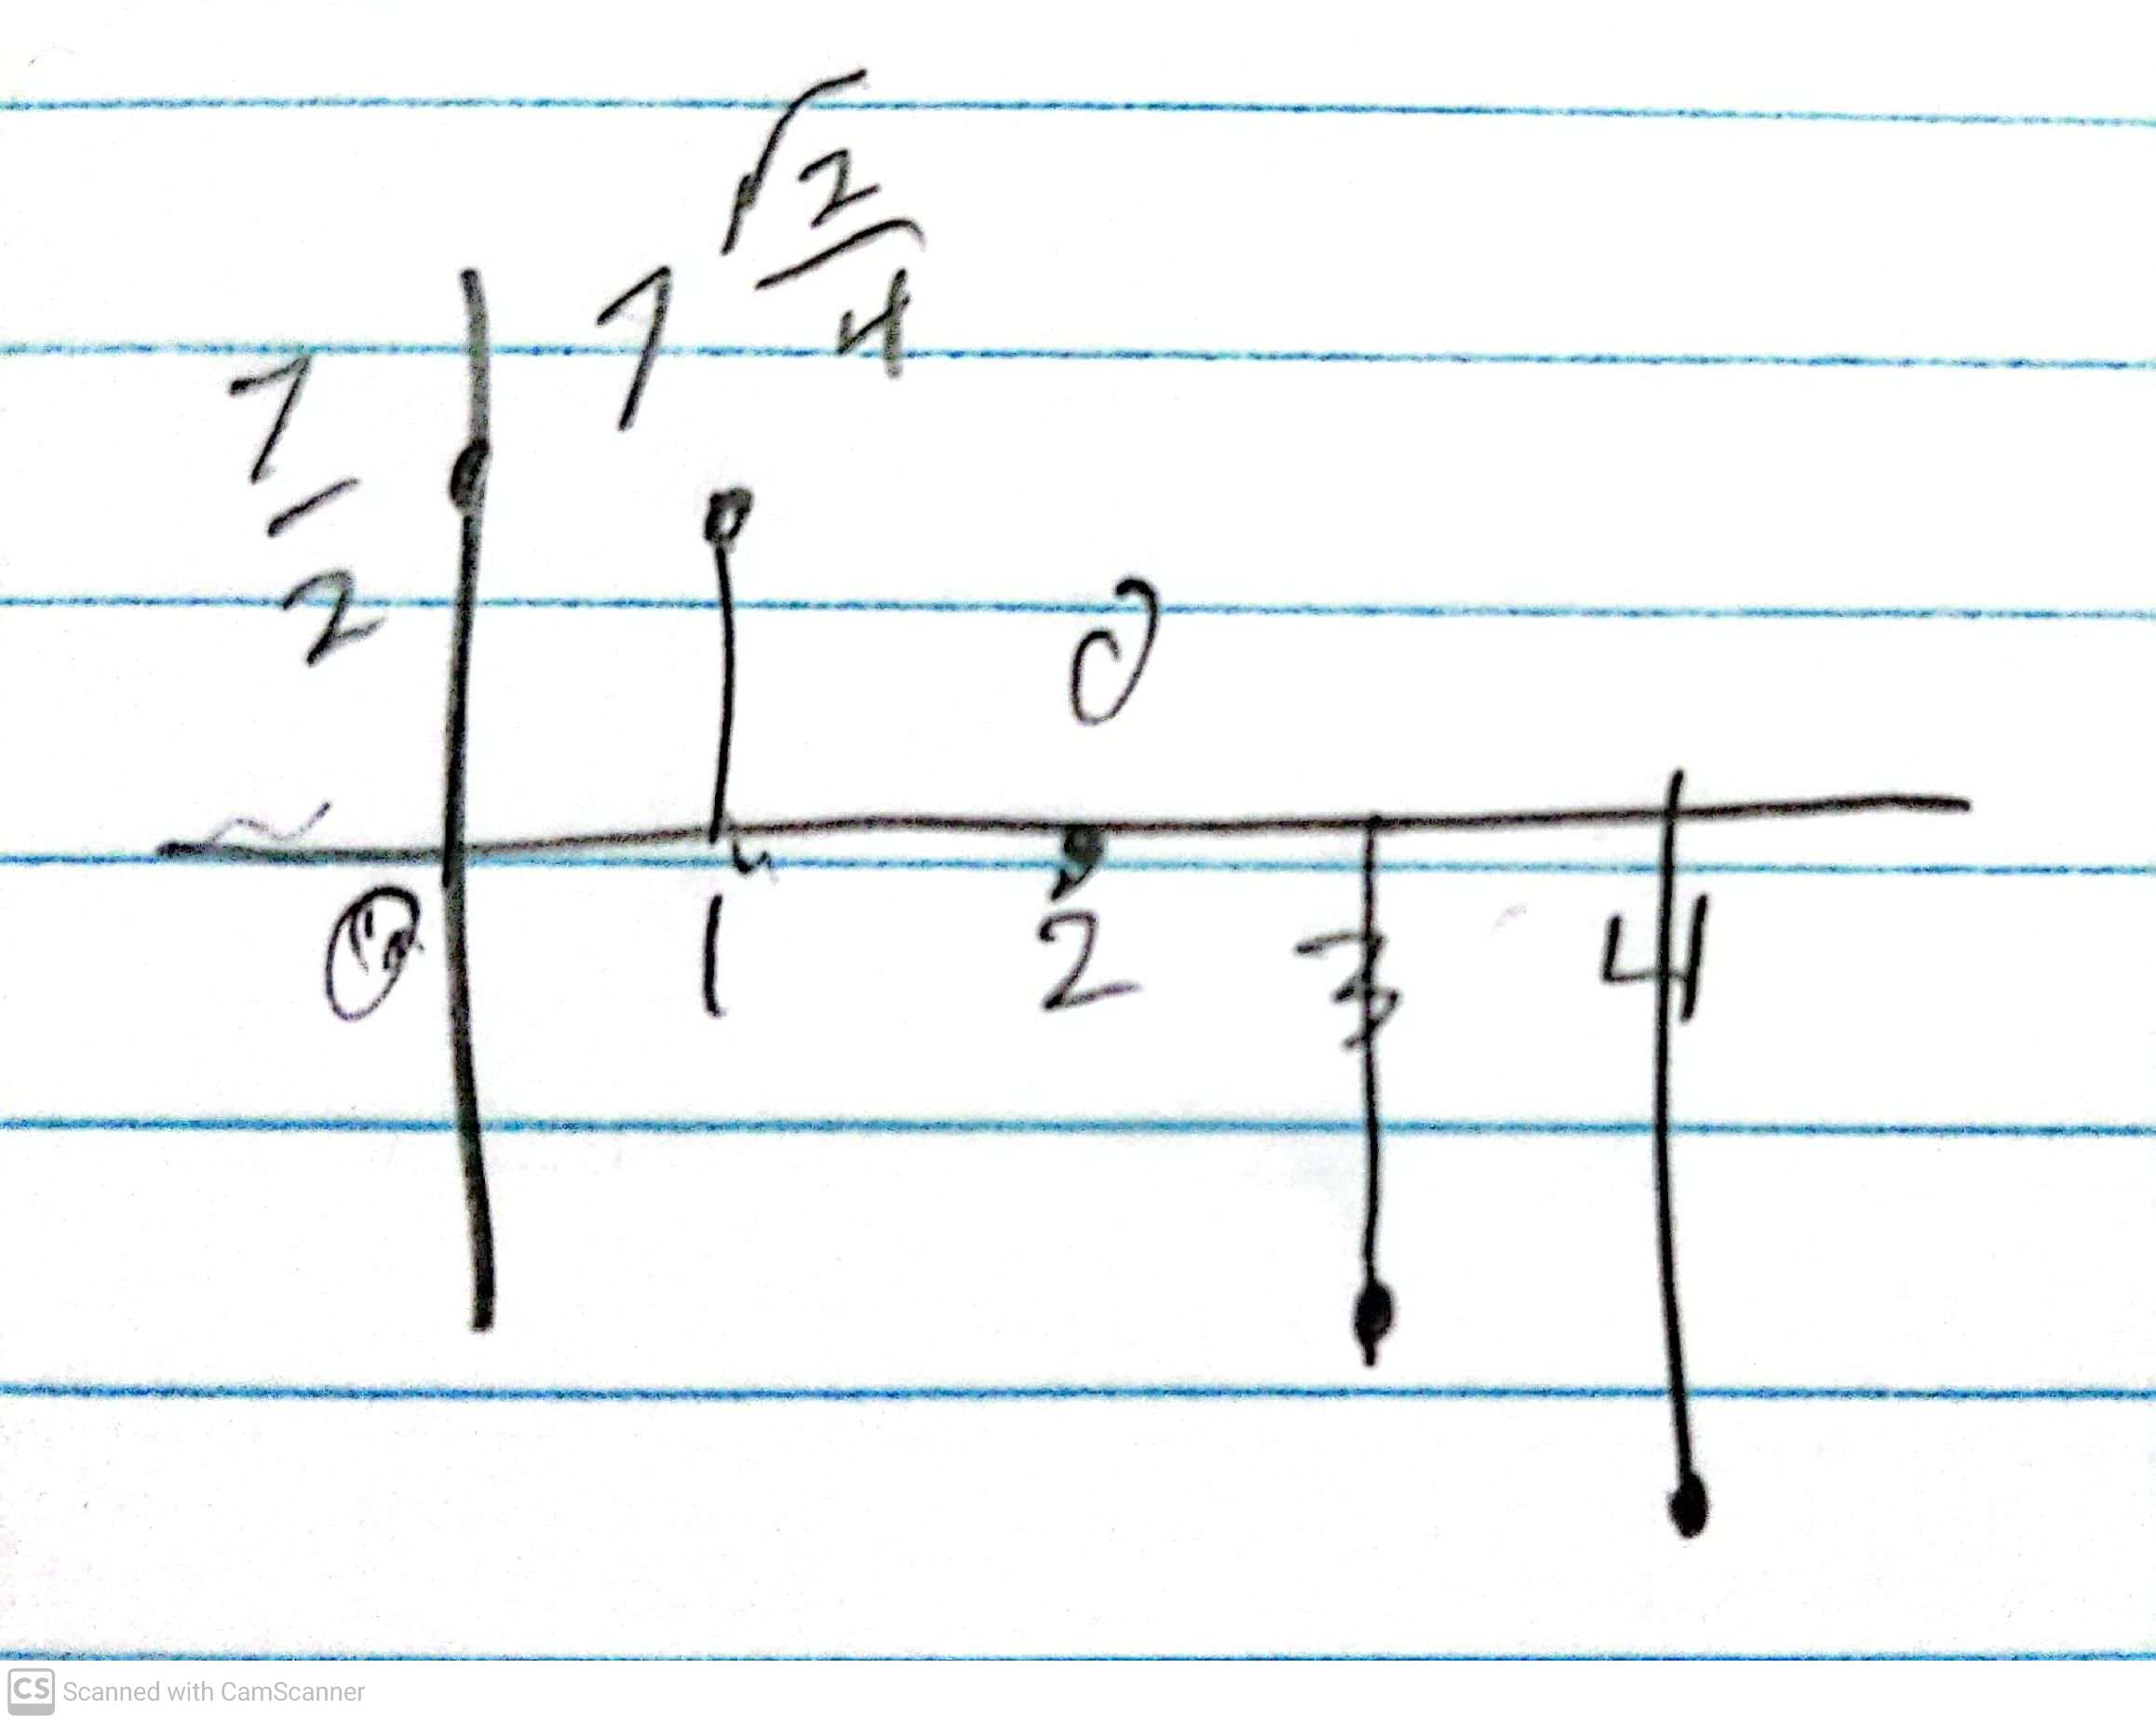 7/2
7 √2/4
0
0 1 2 3 4
CS Scanned with CamScanner